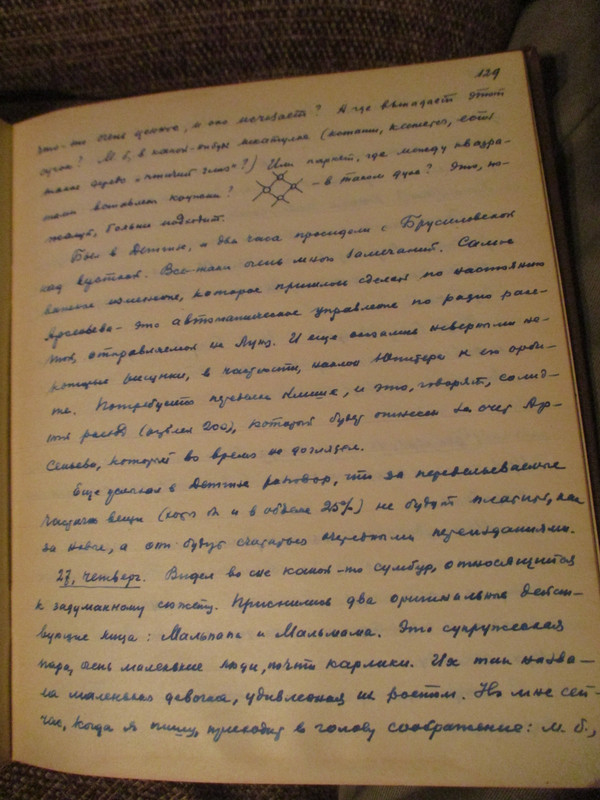 129
что-то очень ценное, и оно исчезает? А где выпадает этот
сучок? М. б, в какой-нибудь шкатулке (кстати, кажется, есть
такое дерево „птичий глаз"?) Или паркет, где между квадра-
тами вставлены кружки? – в таком духе? Это, по-
жалуй, больше подходит.
Был в Детгизе, и два часа просидели с Брусиловской
над версткой. Все-таки очень много замечаний. Самое
важное изменение, которое пришлось сделать по настоянию
Арсеньева – это автоматическое управление по радио раке-
той, отправляемой на Луну. И еще оказались неверными не-
которые рисунки, в частности, наклон Юпитера к его орби-
те. Потребуется переделка клише, и это, говорят, солид-
ный расход (рублей 200), который будет отнесен на счет Ар-
сеньева, который во время не доглядел.
Еще услышал в Детгизе разговор, что за переделываемые
частично вещи (хотя б и в объеме 25%) не будут платить, как
за новые, а они будут считаться очередными переизданиями.
27, четверг. Видел во сне какой-то сумбур, относящийся
к задуманному сюжету. Приснились два оригинальные дейст-
вующие лица: Мальпапа и Мальмама. Это супружеская
пара, очень маленькие люди, почти карлики. Их так назва-
ла маленькая девочка, удивленная их ростом. Но мне сей-
час, когда я пишу, приходит в голову соображение: м. б.,